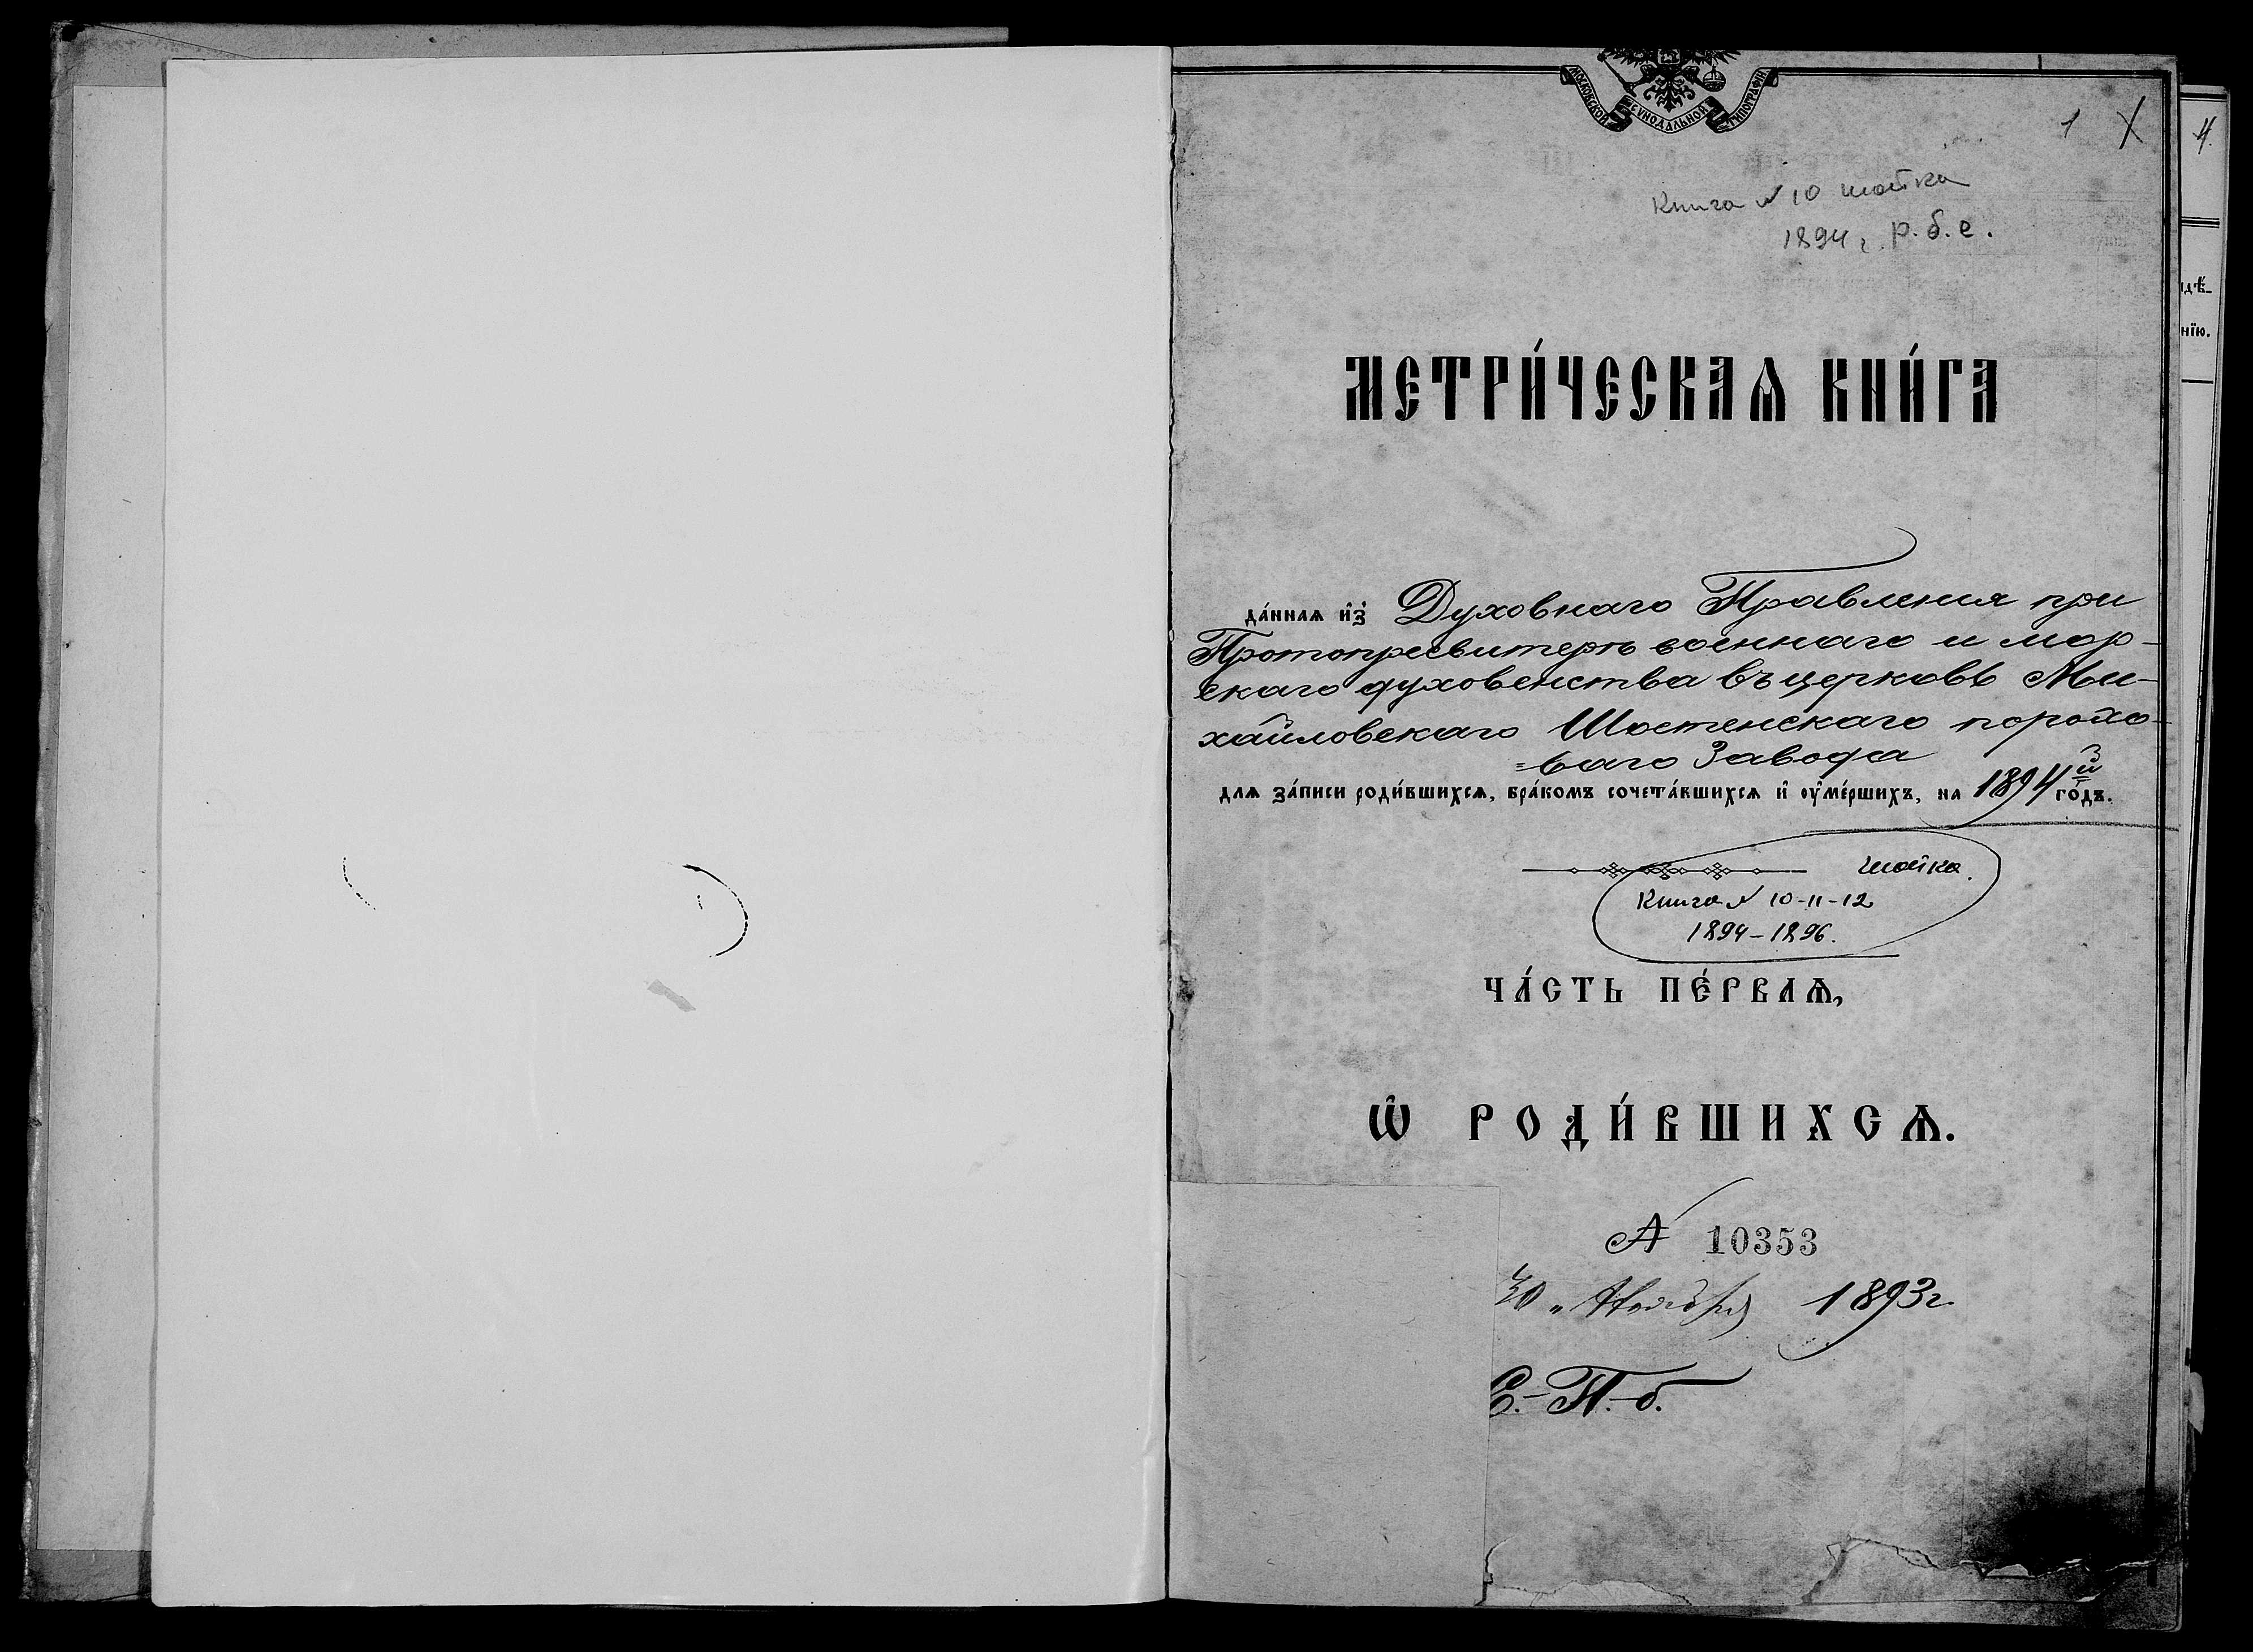 МОСКОВСКОЙ СѴНОДАЛЬНОЙ ТИПОГРАФІИ
1
4.
Книга № 10 шостка
1894 г. р. б. е.
МЕТРИ́ЧЕСКАѦ КНИ́ГА
да́ннаѧ и҆з̾ Духовнаго Правленія при
Протопресвитерѣ военнаго и мор-
скаго духовенства въ церковь Ми-
хайловскаго Шостенскаго порохо-
=ваго Завода
для за́писи роди́вшихсѧ, бра́комъ сочета́вшихсѧ и҆ оу҆ме́ршихъ, на 1894й го́дъ.
шостка.
Книга № 10-11-12
1894-1896.
ЧА́СТЬ ПЕ́РВАѦ,
Ѽ РОДИ́ВШИХСѦ.
№ 10353
30 " Ноября 1893 г.
С.-П.-б.
дѣ-
нїю.